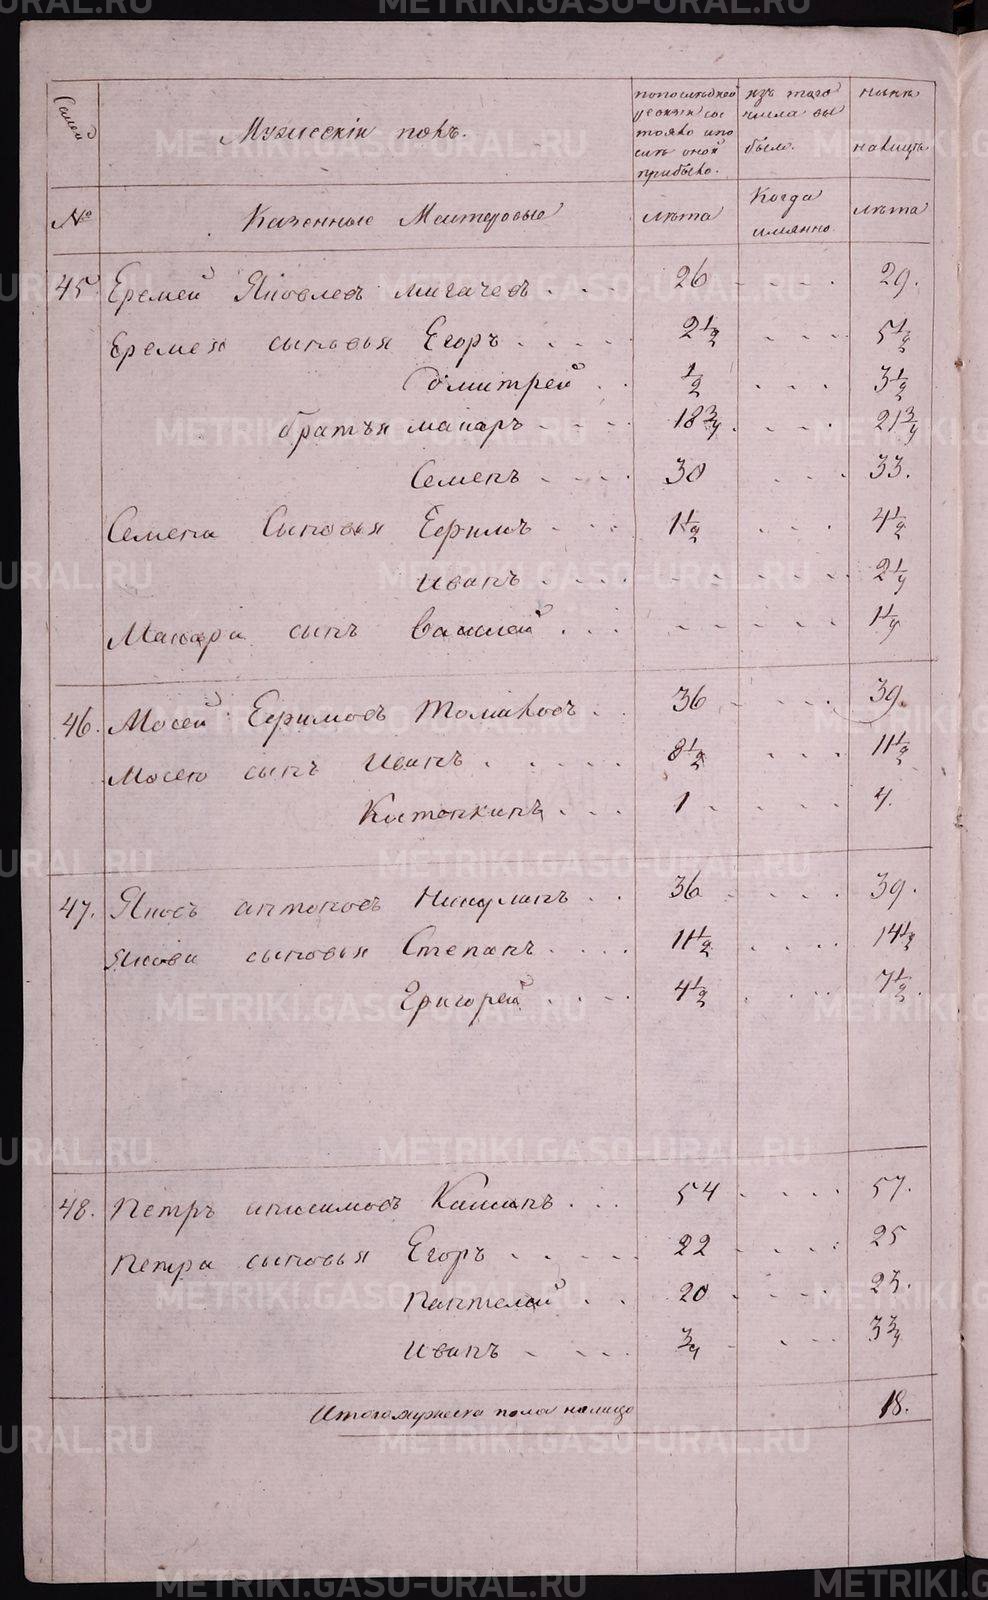 Семей
Мужескiй полъ.
попоследней ревизiи состояло ипосле оной прибыло.
изъ того числа выбыло.
ныне налицо
№
Казенные Мастеровые
лѣта
Когда имянно
лѣта
45. Еремей Яковлевъ Мигачевъ . . . 26 - - - - 29.
Еремея сыновья Егоръ . . . . . 2 1/2 - - - 5 1/2
Дмитрей . . 1/2 - - - 3 1/2
братья макаръ - - - - 18 3/4 . - - - 21 3/4
Семенъ - - - - 30 - - - 33.
Семена Сыновья Ефримъ - - - - 1 1/2 - - - 4 1/2
Иванъ - - - - - - - - - - 2 1/4
Макара сынъ Василей . . . - - - - - 1 1/4
46. Мосей Ефримовъ Толмаковъ . . 36 - - - - 39.
Мосею сынъ Иванъ . . . . . 8 1/2 - - - 11 1/2
Китонкинъ . . . 1 - - - - 4.
47. Яковъ антоновъ Никулинъ . . 36 - - - - 39.
Якова сыновья Степанъ . . . . 11 1/2 - - - - 14 1/2
Григорей . . . . 4 1/2 - - - - 7 1/2
48. Петръ анисимовъ Калинъ . . . 54 - - - - 57.
Петра сыновья Егоръ - - - - - 22 - - - - 25
Пантелей . . 20 - - - - 23.
Иванъ - - - - 3/4 - - - - 3 3/4
Итого мужеска пола налицо 18.
METRIKI.GASO-URAL.RU